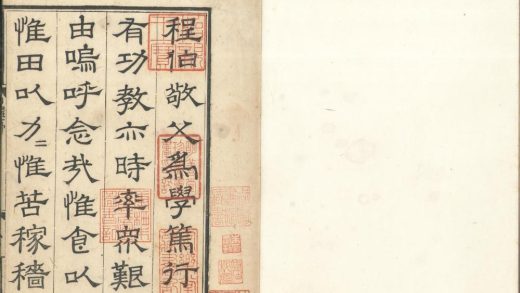 程伯敬父爲學篤行
有功教亦時率眾艱
由嗚呼念哉惟食以
惟田以力〻惟苦稼穡